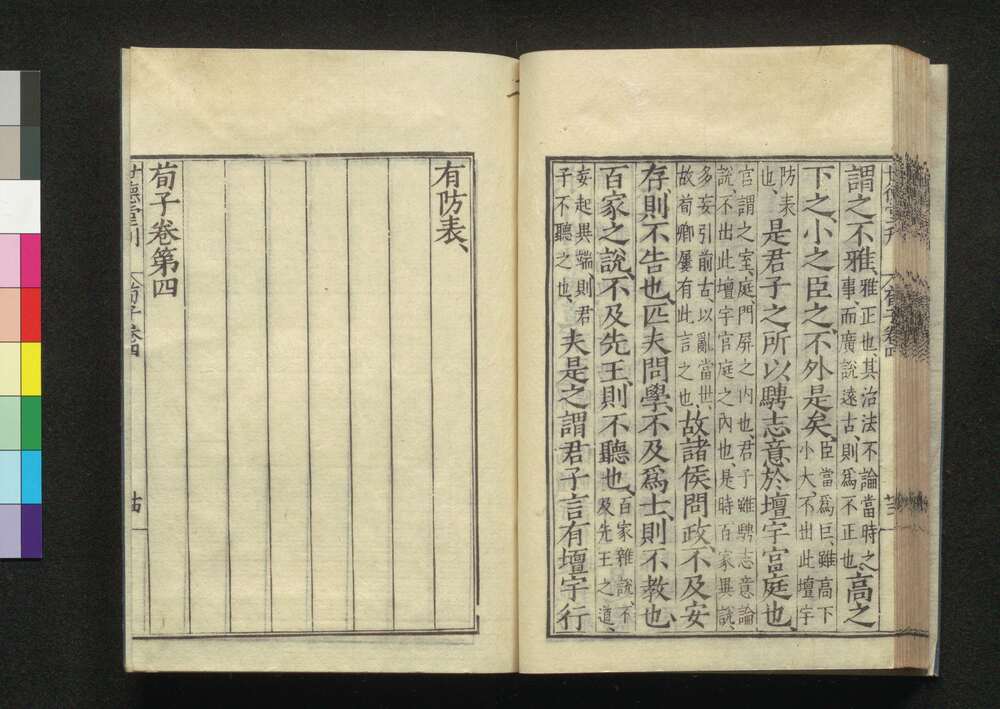 謂之不雅、雅正也、其治法不論當時之事、而廣說遠古、則爲不正也、高之
下之、小之臣之、不外是矣、臣當爲巨、雖高下小大、不出此壇宇
防表也、是君子之所以騁志意於壇宇宮庭也、
宮謂之室、庭門屏之内也、君子雖騁志意論說、不出此壇宇宮庭之内也、是時百家異說、
多妄引前古、以亂當世、故荀卿屢有此言之也、故諸侯問政、不及安
存、則不告也、匹夫問學、不及爲士、則不教也、
百家之說、不及先王、則不聽也、百家雜說、不及先王之道、
妄起異端、則君子、不聽之也、夫是之謂君子言有壇宇行
有防表、
荀子卷第四
世德堂刊 荀子卷四